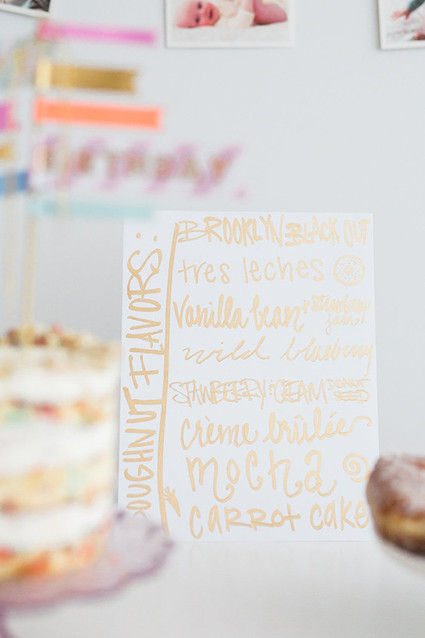 BIRTHDAY
DOUGHNUT FLAVORS:
BROOKLYN BLACK OUT
tres leches
Vanilla bean & Strawberry jam!
wild blueberry
STRAWBERRY & CREAM DONUT SEED
crème brûlée
mocha
carrot cake